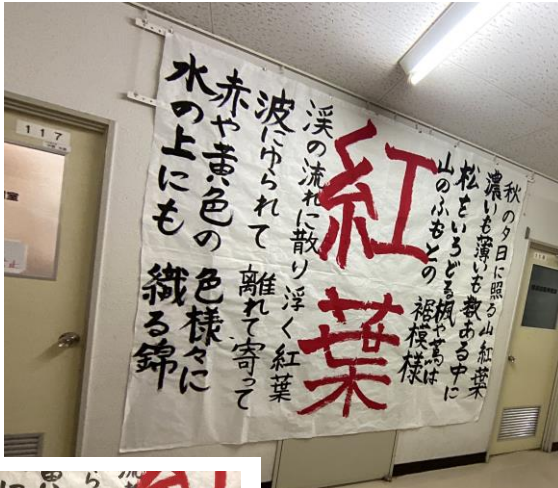 秋の夕日に照る山紅葉
濃いも薄いも数ある中に
松をいろどる楓や蔦は
山のふもとの 裾模様
紅葉
渓の流れに散り浮く紅葉
波にゆられて 離れて寄って
赤や黄色の 色様々に
水の上にも 織る錦
117